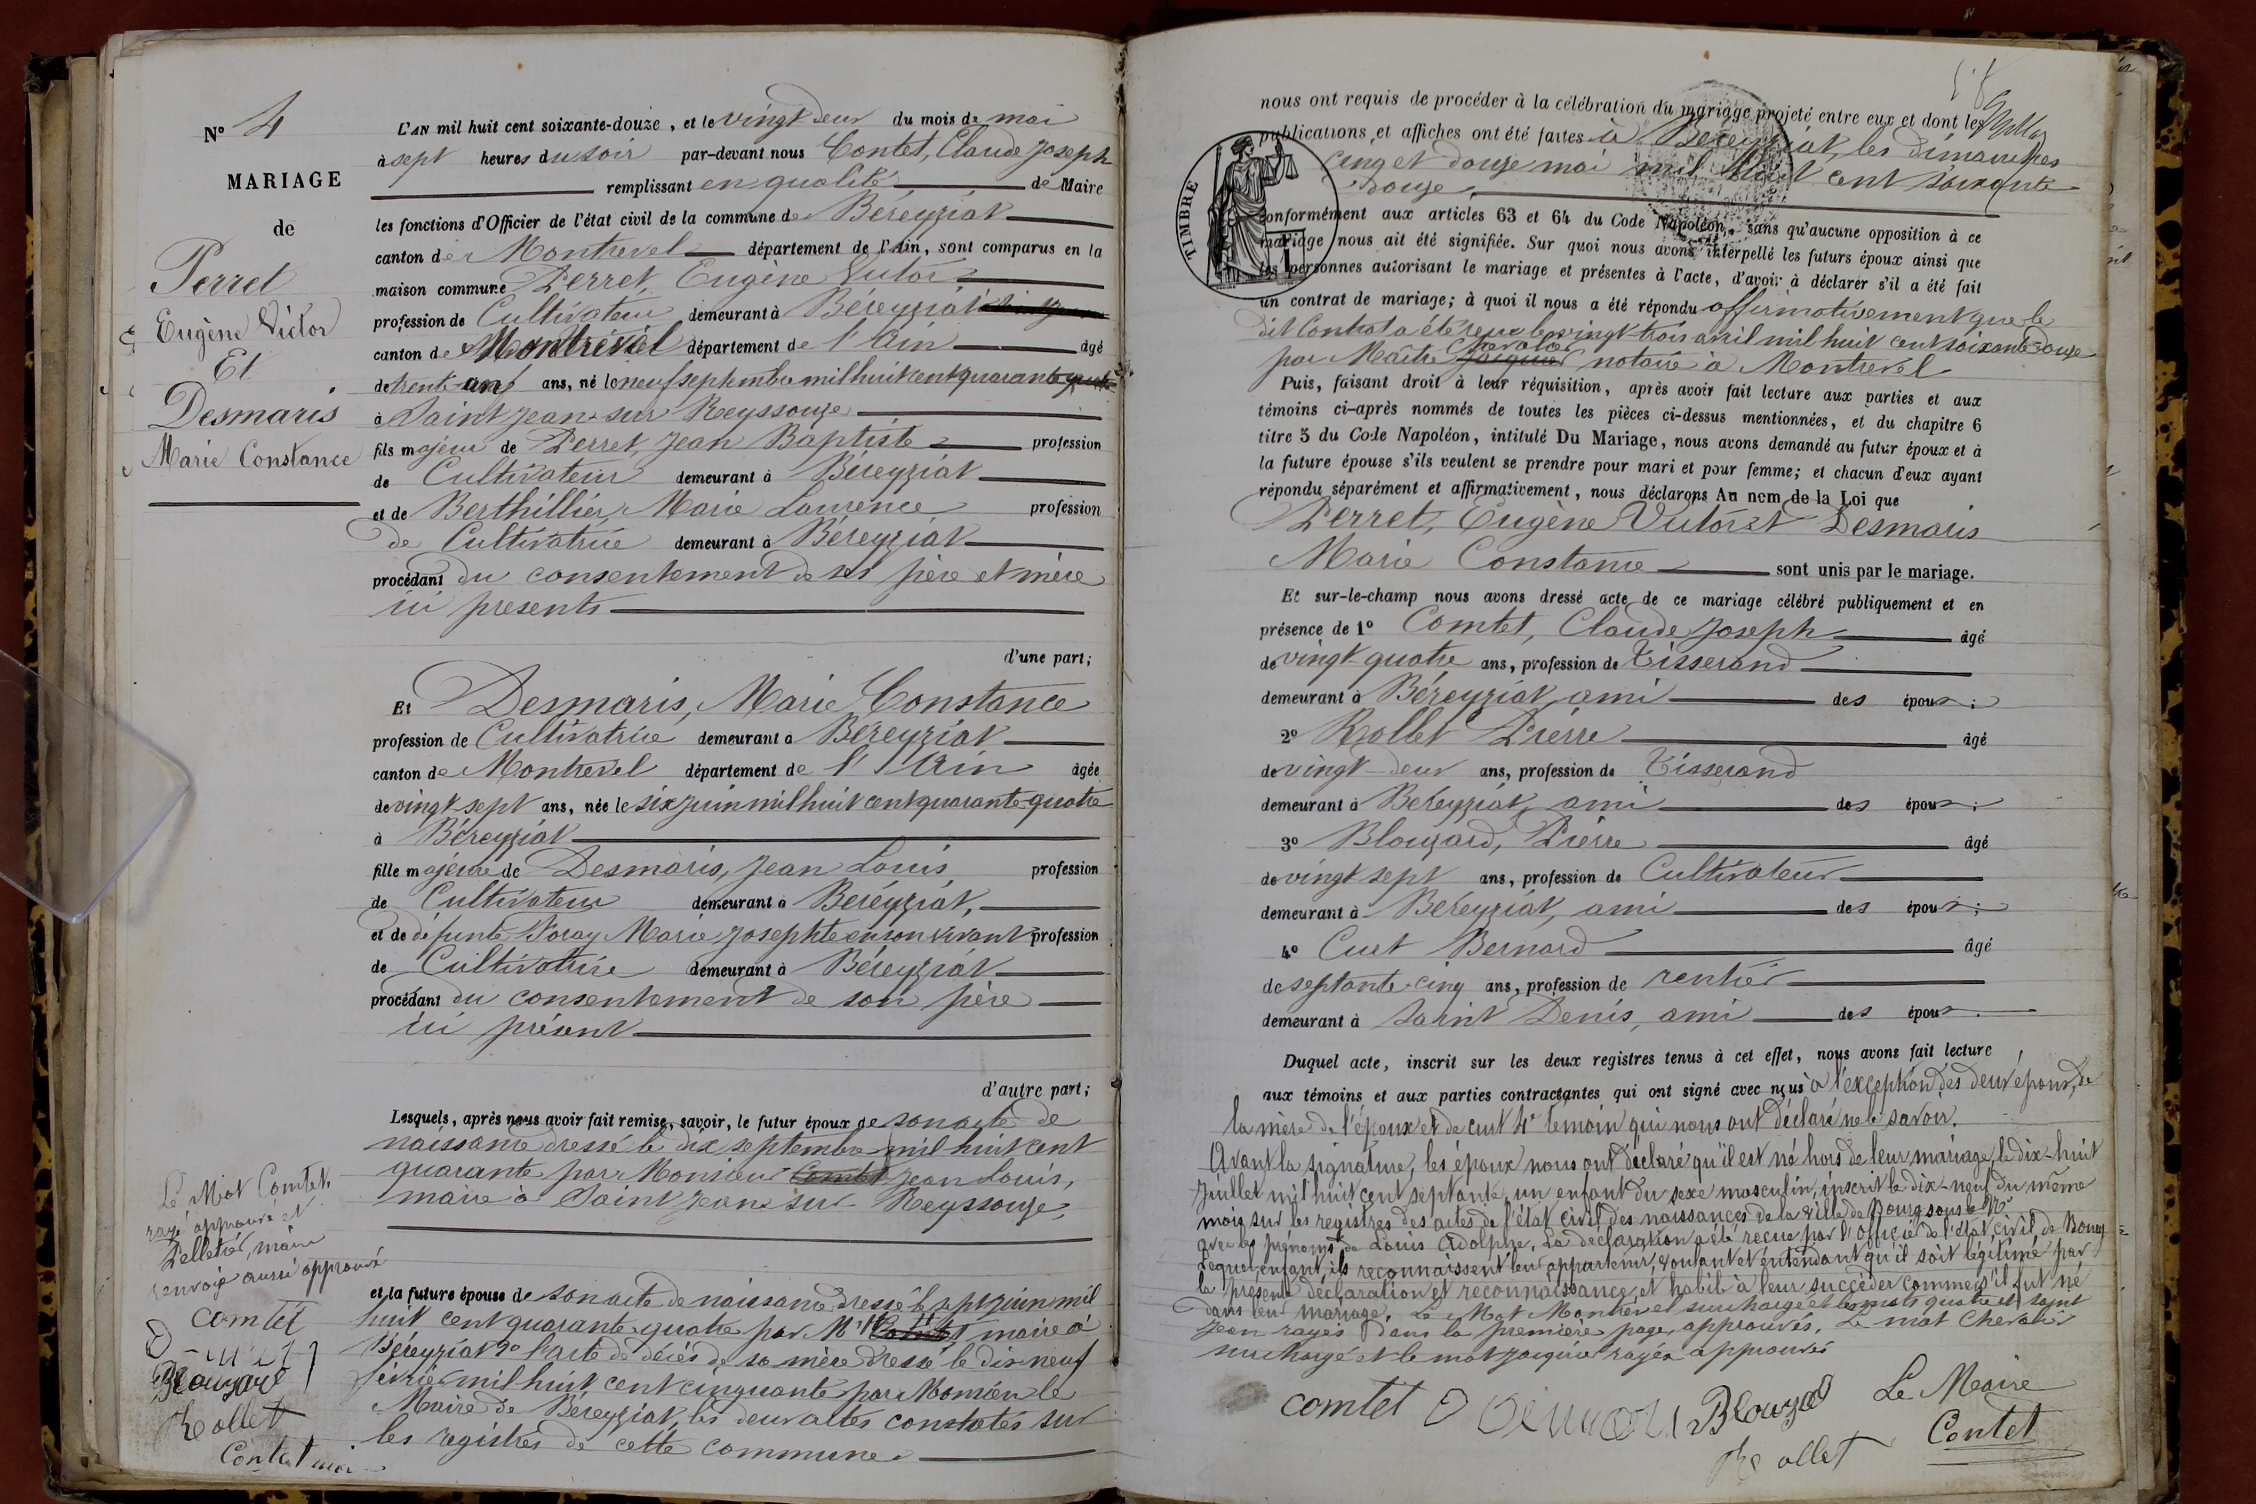 N° 4
MARIAGE
de
Perret
Eugène Victor
Et
Desmaris
Marie Constance
L'AN mil huit cent soixante-douze, et le vingt deux du mois de mai
à sept heures du soir par-devant nous Contet, Claude Joseph
remplissant en qualité de Maire
les fonctions d'Officier de l'état civil de la commune de Béreyziat
canton de Montrevel département de l'Ain, sont comparus en la
maison commune Perret, Eugène Victor
profession de Cultivateur demeurant à Béreyziat
canton de Montrevel département de l'Ain âgé
de trente un ans, né le neuf septembre mil huit cent quarante quatre
à Saint Jean sur Reyssouze
fils majeur de Perret, Jean Baptiste profession
de Cultivateur demeurant à Béreyziat
et de Berthillier, Marie Laurence profession
de Cultivatrice demeurant à Béreyziat
procédant du consentement de ses père et mère
ici presents
d'une part;
Et Desmaris, Marie Constance
profession de Cultivatrice demeurant à Béreyziat
canton de Montrevel département de l'Ain âgée
de vingt sept ans, née le six juin mil huit cent quarante-quatre
à Béreyziat
fille majeure de Desmaris, Jean Louis profession
de Cultivateur demeurant à Béréyziat,
et de défunte Marie Josephte en son vivant profession
de Cultivatrice demeurant à Béreyziat
procédant du consentement de son père
ici présent
d'autre part;
Lesquels, après nous avoir fait remise, savoir, le futur époux de son acte de
naissance dressé le dix septembre mil huit cent
quarante par Monsieur Comtet Jean Louis,
maire à Saint Jean sur Reyssouze,
et la future épouse de son acte de naissance dressé le sept juin mil
huit cent quarante quatre par Mr maire à
Béréyziat 2° l'acte de décès de sa mère dressé le dix neuf
février mil huit cent cinquante par Monsieur le
Maire de Béreyziat, les deux actes constatés sur
les registres de cette commune.
Le Mot Comtet
rayé approuvé et
Pelletier, maire
renvoie aussi approuvé
comtet
Blouzard
Rollet
Contet
nous ont requis de procéder à la célébration du mariage projeté entre eux et dont les
publications et affiches ont été faites à Béreyziat, les dimanches
cinq et douze mai mil huit cent soixante
douze
TIMBRE
conformément aux articles 63 et 64 du Code Napoléon, sans qu'aucune opposition à ce
mariage nous ait été signifiée. Sur quoi nous avons interpellé les futurs époux ainsi que
les personnes autorisant le mariage et présentes à l'acte, d'avoir à déclarer s'il a été fait
un contrat de mariage; à quoi il nous a été répondu affirmativement que le
dit Contrat a été reçu le vingt-trois avril mil huit cent soixante-douze
Chevalier
par Maître Jacquier notaire à Montrevel
Puis, faisant droit à leur réquisition, après avoir fait lecture aux parties et aux
témoins ci-après nommés de toutes les pièces ci-dessus mentionnées, et du chapitre 6
titre 5 du Code Napoléon, intitulé Du Mariage, nous avons demandé au futur époux et à
la future épouse s'ils veulent se prendre pour mari et pour femme; et chacun d'eux ayant
répondu séparément et affirmativement, nous déclarons Au nom de la Loi que
Perret, Eugène Victor et Desmaris
Marie Constance sont unis par le mariage.
Et sur-le-champ nous avons dressé acte de ce mariage célébré publiquement et en
présence de 1° Comtet, Claude Joseph âgé
de vingt quatre ans, profession de Tisserand
demeurant à Béreyziat, ami des époux;
2° Rollet Pierre âgé
de vingt-deux ans, profession de Tisserand
demeurant à Béreyziat, ami des époux;
3° Blouzard, Pierre âgé
de vingt sept ans, profession de Cultivateur
demeurant à Béreyziat, ami des époux;
4° Curt Bernard âgé
de septante-cinq ans, profession de rentier
demeurant à Saint Denis, ami des époux.
Duquel acte, inscrit sur les deux registres tenus à cet effet, nous avons fait lecture
aux témoins et aux parties contractantes qui ont signé avec nous à l'exception des deux époux, de
la mère de l'époux et de curt 4e témoin qui nous ont déclaré ne le savoir.
Avant la signature, les époux nous ont déclaré qu'il est né hors de leur mariage, le dix-huit
Juillet mil huit cent septante, un enfant du sexe masculin, inscrit le dix-neuf du même
mois sur les registres des actes de l'état civil des naissances de la ville de Bourg sous le N°
avec les prénoms de Louis Adolphe. La déclaration a été reçue par l'officier de l'état civil de Bourg
Lequel enfant, ils reconnaissent leur appartenir, voulant et entendant qu'il soit légitimé par
la présente déclaration et reconnaissance, et habil à leur succéder comme s'il fut né
dans leur mariage. Le Mot Montrevel surchargé et les mots quatre et Saint
Jean rayés dans la première page, approuvés. Le mot Chevalier
surchargé et le mot jacquier rayés approuvés
comtet
Blouzard
Rollet
Le Maire
Contet